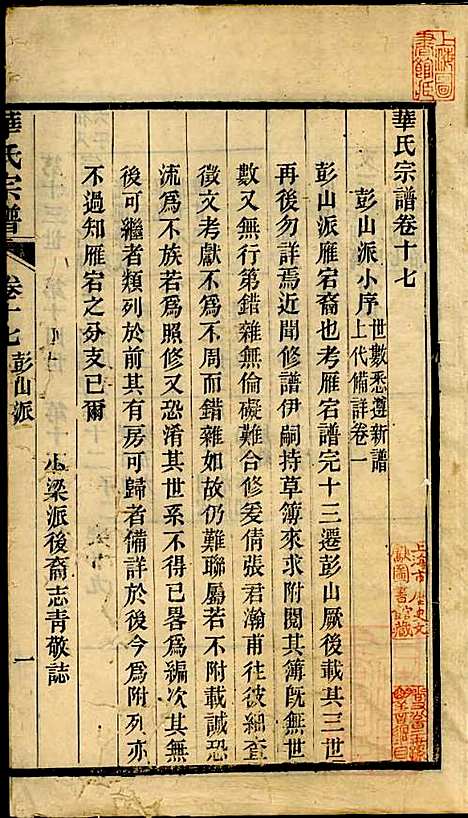 上海圖書館藏
華氏宗譜卷十七
彭山派小序 世數悉遵新譜
上代備詳卷一
彭山派雁宕裔也考雁宕譜完十三遷彭山厥後載其三世
再後勿詳焉近聞修譜伊嗣持草簿來求附閱其簿既無世
數又無行第錯雜無倫礙難合修爰倩張君瀚甫往彼細查
徵文考獻不周而錯雜如故仍難聯屬若不附載誠恐
流為不族若為照修又恐淆其世系不得已畧為編次其無
後可繼者類列於前其有房可歸者備詳於後今為附列亦
不過知雁宕之分支已爾
小梁派後裔志青敬誌
華氏宗譜
卷十七
彭山派
一
上海市歷史文獻圖書館藏